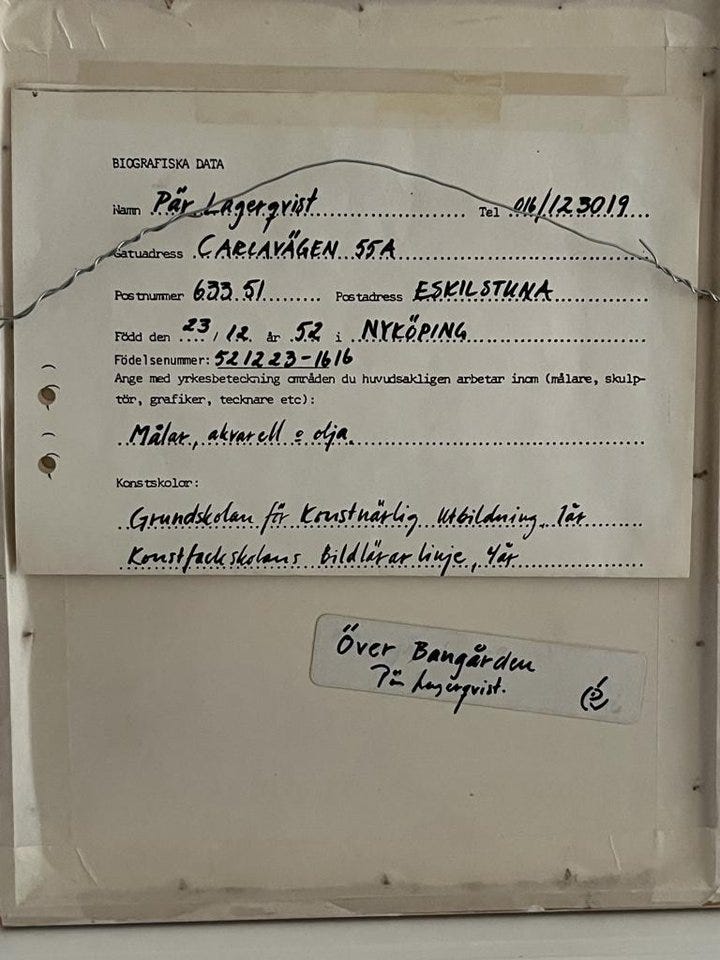 BIOGRAFISKA DATA
Namn Pär Lagerqvist Tel 016/123019
Gatuadress CARLAVÄGEN 55A
Postnummer 633 51 Postadress ESKILSTUNA
Född den 23/12 år 52 i NYKÖPING
Födelsenummer: 521223-1616
Ange med yrkesbeteckning områden du huvudsakligen arbetar inom (målare, skulp-
tör, grafiker, tecknare etc):
Målar, akvarell o olja.
Konstskolor:
Grundskolan för Konstnärlig Utbildning, 1år
Konstfackskolans Bildlärarlinje, 4år
Över Bangården
Pär Lagerqvist.